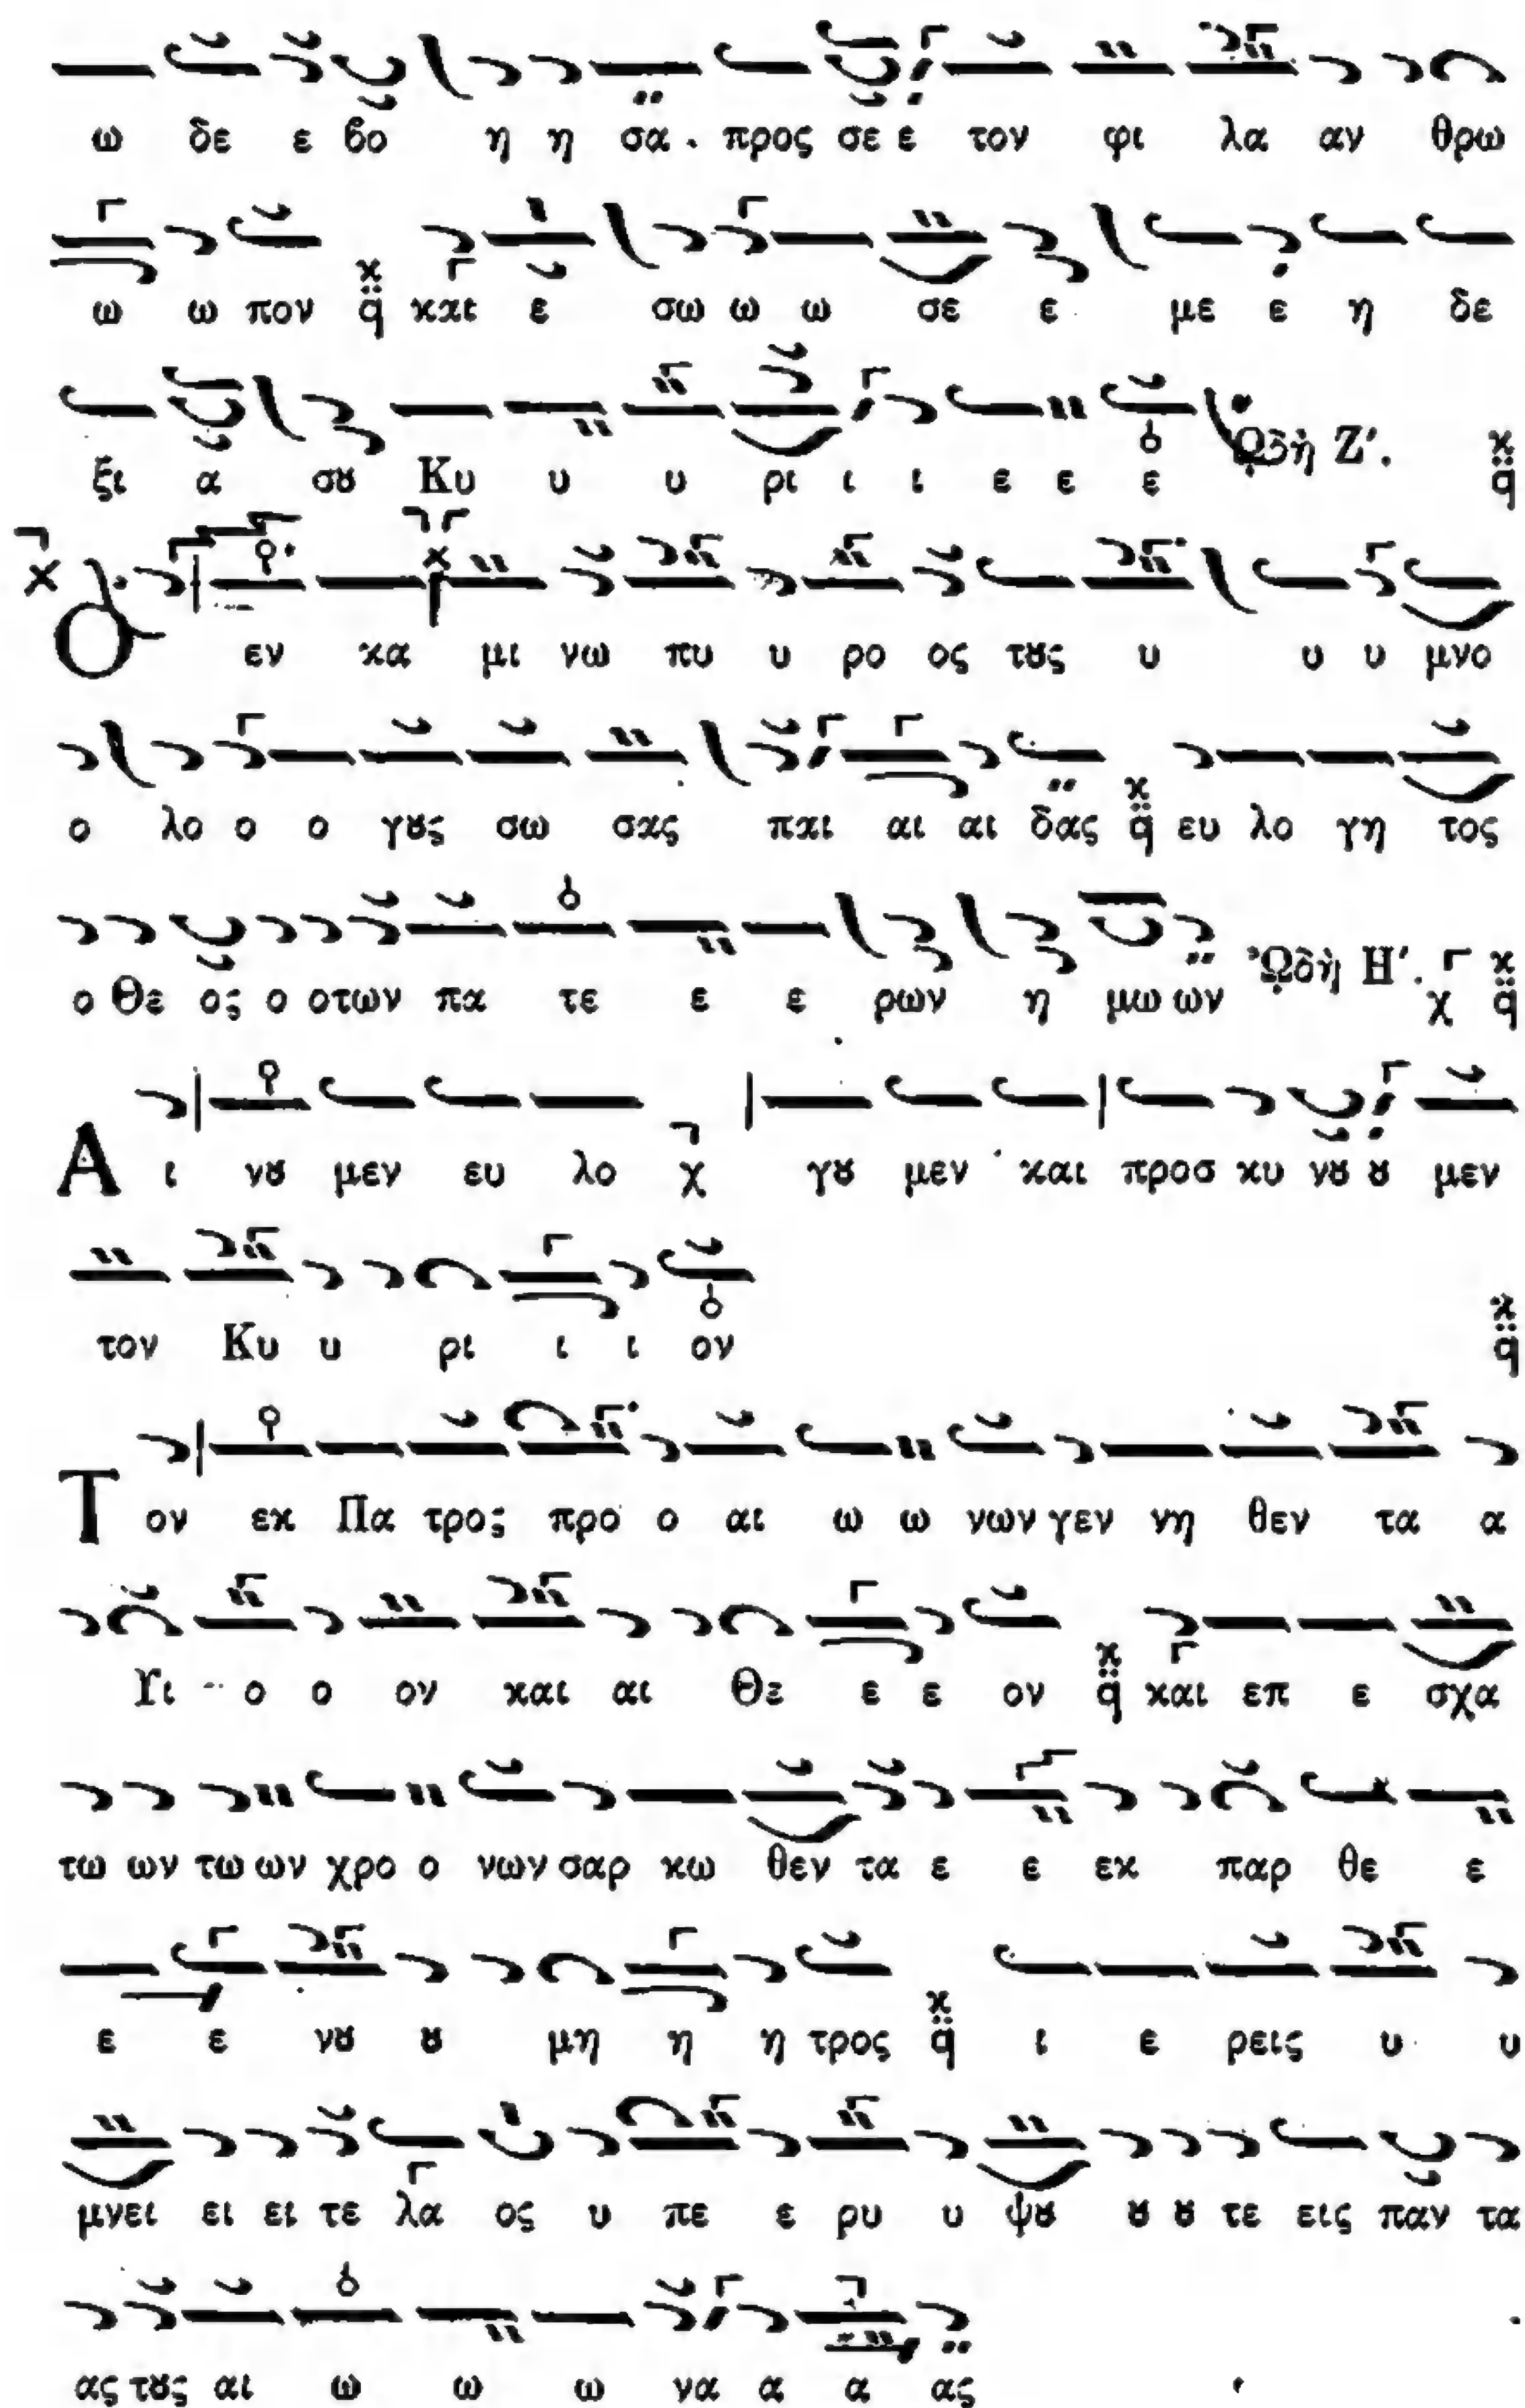 ω δε ε βο η η σα . προς σε ε τον φι λα αν θρω
ω ω πον q̈ και ε σω ω ω σε ε με ε η δε
ξι α σȣ Κυ υ υ ρι ι ι ε ε ε Ὠδὴ Ζʹ. q̈
Ο εν κα μι νω πυ υ ρο ος τȣς υ υ υ μνο
ο λο ο ο γȣς σω σας παι αι αι δας q̈ ευ λο γη τος
ο Θε ος ο οτων πα τε ε ε ρων η μω ων Ὠδὴ Ηʹ. χ q̈
Α ι νȣ μεν ευ λο χ γȣ μεν και προσ κυ νȣ ȣ μεν
τον Κυ υ ρι ι ι ον q̈
Τ ον εκ Πα τρος προ ο αι ω ω νων γεν νη θεν τα α
Υι ο ο ον και αι Θε ε ε ον q̈ και επ ε σχα
τω ων τω ων χρο ο νων σαρ κω θεν τα ε ε εκ παρ θε ε
ε ε νȣ ȣ μη η η τρος q̈ ι ε ρεις υ υ
μνει ει ει τε λα ος υ πε ε ρυ υ ψȣ ȣ ȣ τε εις παν τα
ας τȣς αι ω ω ω να α α ας